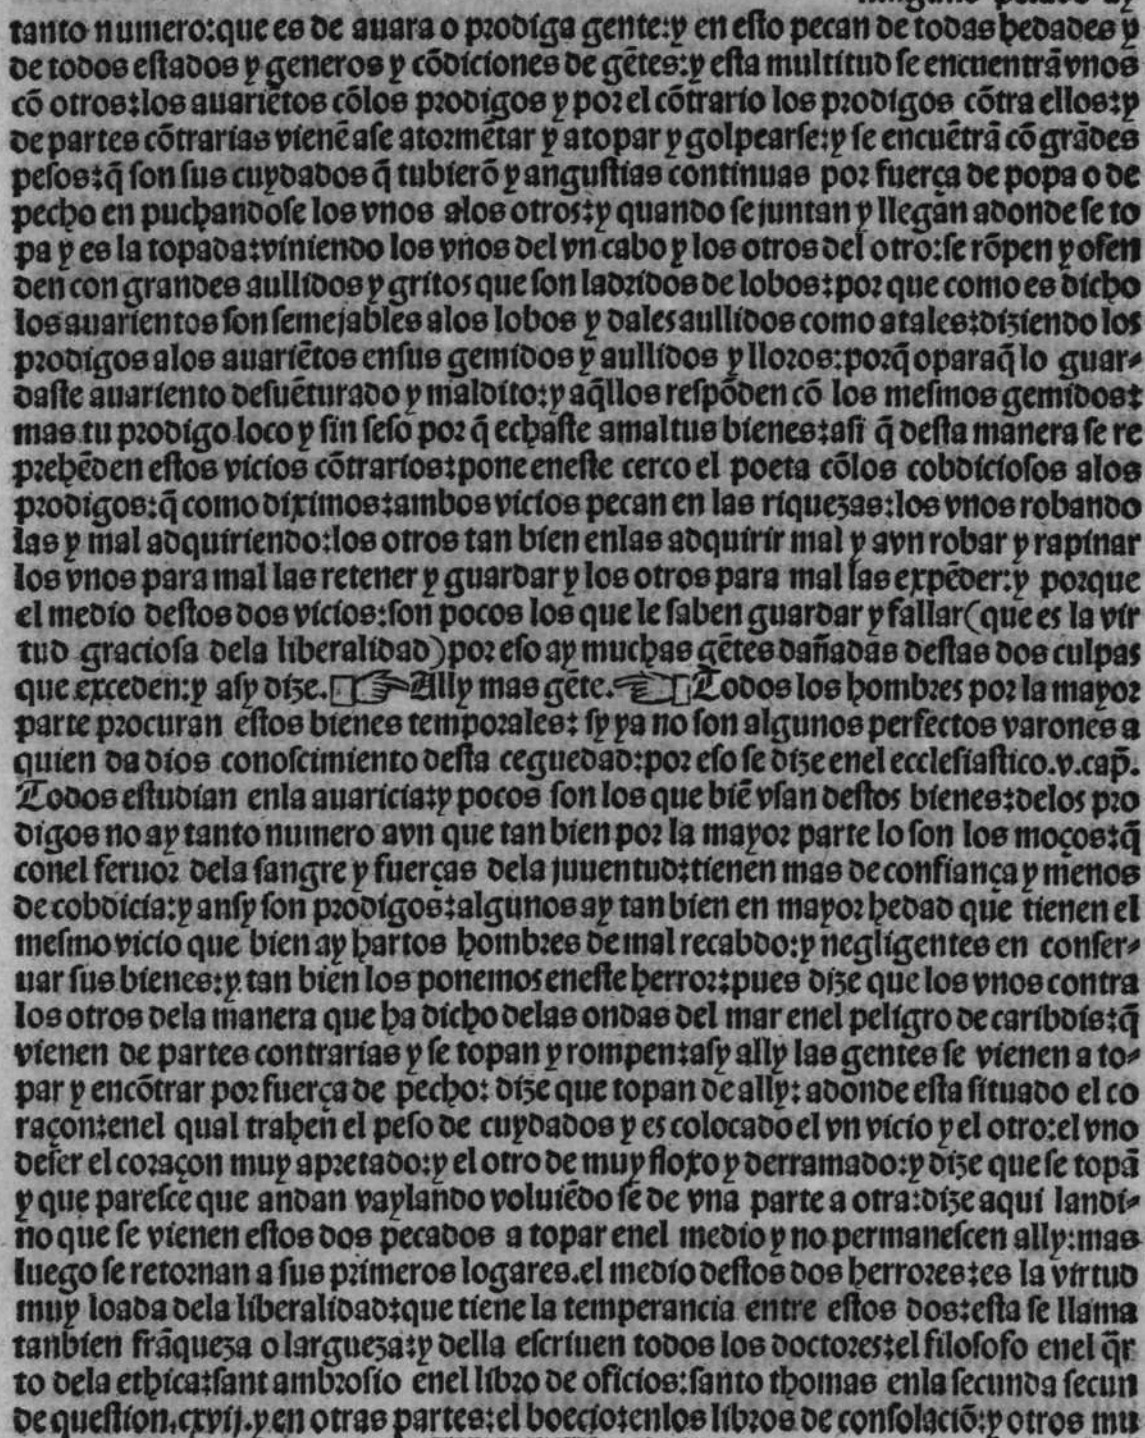 tanto numero:que es de auara o prodiga gente:y en esto pecan de todas hedades y
de todos estados y generos y cõdiciones de gẽtes:y esta multitud se encuentrã vnos
cõ otros:los auariẽtos cõlos prodigos y por el cõtrario los prodigos cõtra ellos:y
de partes cõtrarias vienẽ ase atormẽtar y atopar y golpearse:y se encuẽtrã cõ grãdes
pesos:q̃ son sus cuydados q̃ tubierõ y angustias continuas por fuerça de popa o de
pecho en puchandose los vnos alos otros:y quando se juntan y llegan adonde se to
pa y es la topada:viniendo los vnos del vn cabo y los otros del otro:se rõpen y ofen
den con grandes aullidos y gritos que son ladridos de lobos:por que como es dicho
los auarientos son semejables alos lobos y dales aullidos como atales:diziendo los
prodigos alos auariẽtos ensus gemidos y aullidos y lloros:porq̃ oparaq̃ lo guar-
daste auariento desuẽturado y maldito:y aq̃llos respõden cõ los mesmos gemidos:
mas tu prodigo loco y sin seso por q̃ echaste amaltus bienes:asi q̃ desta manera se re
prehẽden estos vicios cõtrarios:pone eneste cerco el poeta cõlos cobdiciosos alos
prodigos:q̃ como diximos:ambos vicios pecan en las riquezas:los vnos robando
las y mal adquiriendo:los otros tan bien enlas adquirir mal y avn robar y rapinar
los vnos para mal las retener y guardar y los otros para mal las expẽder:y porque
el medio destos dos vicios:son pocos los que le saben guardar y fallar(que es la vir
tud graciosa dela liberalidad)por eso ay muchas gẽtes dañadas destas dos culpas
que exceden:y asy dize.☞Ally mas gẽte.☜Todos los hombres por la mayor
parte procuran estos bienes temporales: sy ya no son algunos perfectos varones a
quien da dios conoscimiento desta ceguedad:por eso se dize enel ecclesiastico.v.cap̃.
Todos estudian enla auaricia:y pocos son los que biẽ vsan destos bienes:delos pro
digos no ay tanto numero avn que tan bien por la mayor parte lo son los moços:q̃
conel feruor dela sangre y fuerças dela juuentud:tienen mas de confiança y menos
de cobdicia:y ansy son prodigos:algunos ay tan bien en mayor hedad que tienen el
mesmo vicio que bien ay hartos hombres de mal recabdo:y negligentes en conser-
uar sus bienes:y tan bien los ponemos eneste herror:pues dize que los vnos contra
los otros dela manera que ha dicho delas ondas del mar enel peligro de caribdis:q̃
vienen de partes contrarias y se topan y rompen:asy ally las gentes se vienen a to-
par y encõtrar por fuerça de pecho: dize que topan de ally: adonde esta situado el co
raçon:enel qual trahen el peso de cuydados y es colocado el vn vicio y el otro:el vno
deser el coraçon muy apretado:y el otro de muy floxo y derramado:y dize que se topã
y que paresce que andan vaylando voluiẽdo se de vna parte a otra:dize aqui landi-
no que se vienen estos dos pecados a topar enel medio y no permanescen ally:mas
luego se retornan a sus primeros logares.el medio destos dos herrores:es la virtud
muy loada dela liberalidad:que tiene la temperancia entre estos dos:esta se llama
tanbien frãqueza o largueza:y della escriuen todos los doctores:el filosofo enel q̃r
to dela ethica:sant ambrosio enel libro de oficios:santo thomas enla secunda secun
de question.cxvij.y en otras partes:el boecio:enlos libros de consolaciõ:y otros mu